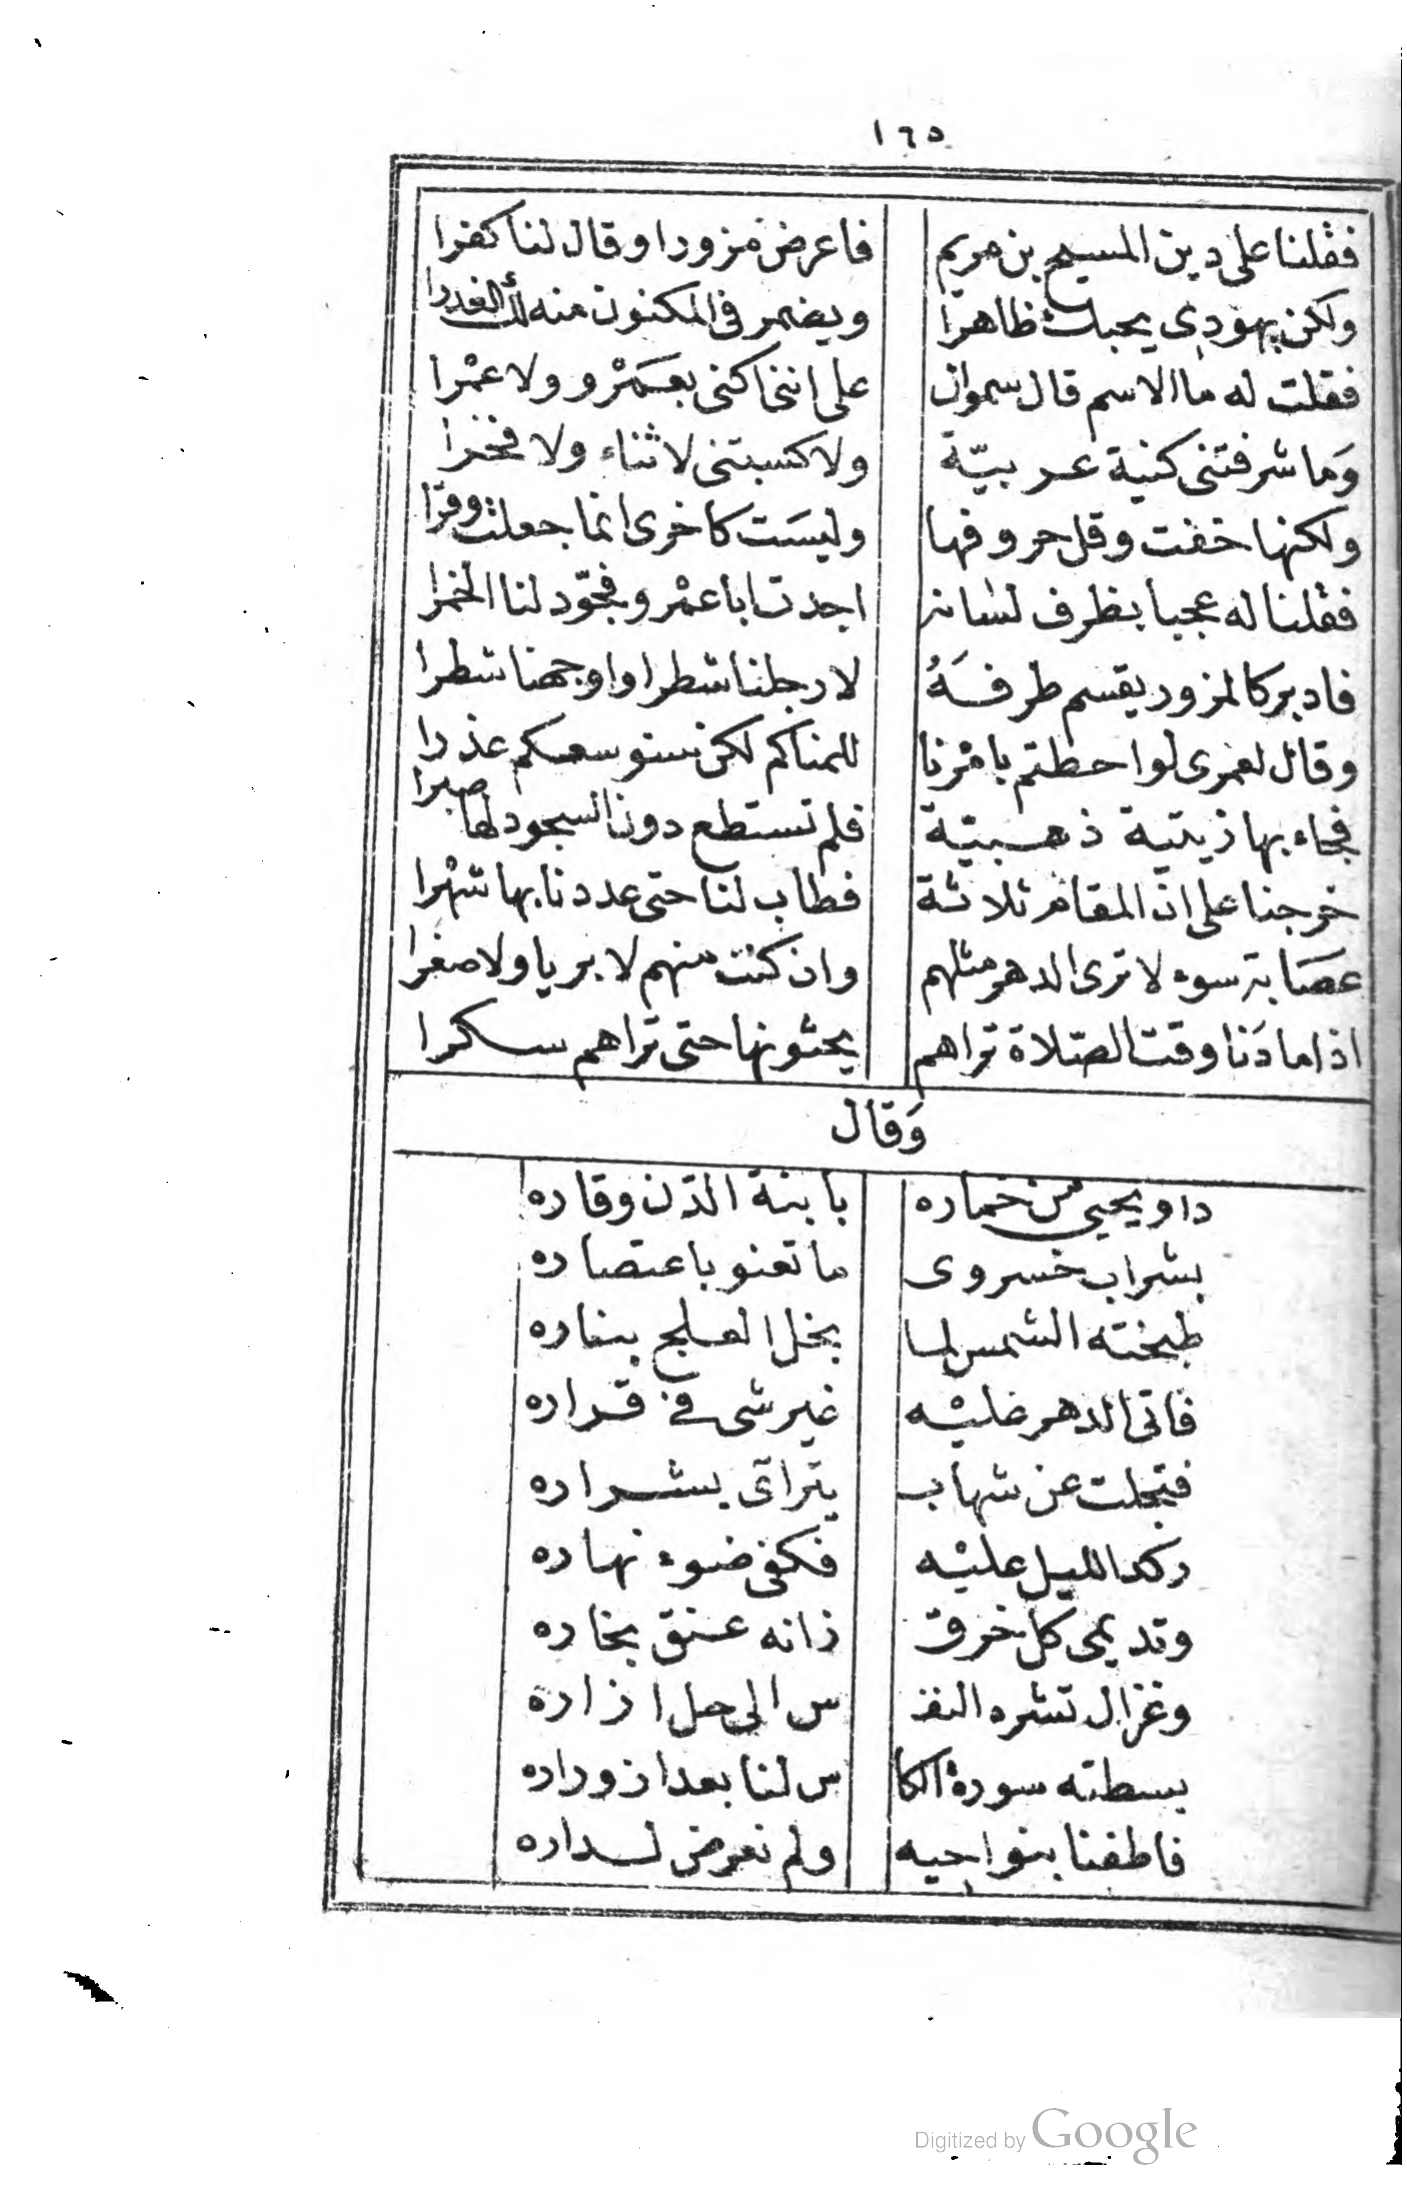 ١٦٥
فقلنا على دين المسيح بن مريم فاعرض مزورا وقال لنا كفرا
ولكن يهودى يحبك ظاهرا ويضمر فى المكنون منه لك الغدرا
فقلت له ما الاسم قال سموال على اننى اكنى بعمْرو ولا عمْرا
وَما شرفتنى كنية عربيّة ولا كسبتنى لا ثناء ولا فخرا
ولكنها خفت وقل حروفها وليسَت كاخرى انما جعلت وقرا
فقلنا له عجبا بظرف لسانه اجدت ابا عمْرو فجوّد لنا الخمرا
فادبر كالمزور يقسم طرفَهُ لارجلنا شطرا واوجهنا شطرا
وقال لعمرى لو احطتم بامْرنا للمناكم لكن سنوسعكم عذرا
فجاء بها زيتية ذهبيّة فلم نستطع دون السجود لها صبرا
خرجنا على ان المقام ثلاثة فطاب لنا حتى عددنا بها شهْرا
عصَابة سوء لا ترى الدهر مثلهم وان كنت منهم لا بريا ولا صغرا
اذا ما دَنا وقت الصّلاة تراهم يحثونها حتى تراهم سكرا
وَقال
داو يحيى من خماره بابنة الدّن وقاره
بشراب خسروى ما تعنو باعتصاره
طبخته الشمس لما بخل العلج بناره
فاتى الدهر عليْه غير شى فى قراره
فتجلت عن شهاب يترآى بشراره
ركد الليل عليْه فكفى ضوء نهاره
وتديمى كل خرق زانه عتق نجاره
وغزال تشره النفـ س الى حل ازاره
بسطته سورة الكا س لنا بعد ازوراره
فاطفنا بنواحيه ولم نعرض لداره
Digitized by Google